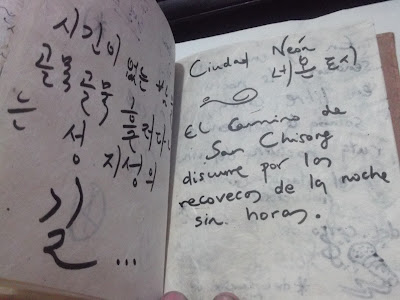 시간이
없는
골목 골목
는 성
지성의
길 ...
Ciudad Neón
네온 도시
El camino de
San Chisong
discurre por los
recovecos de la noche
sin horas.